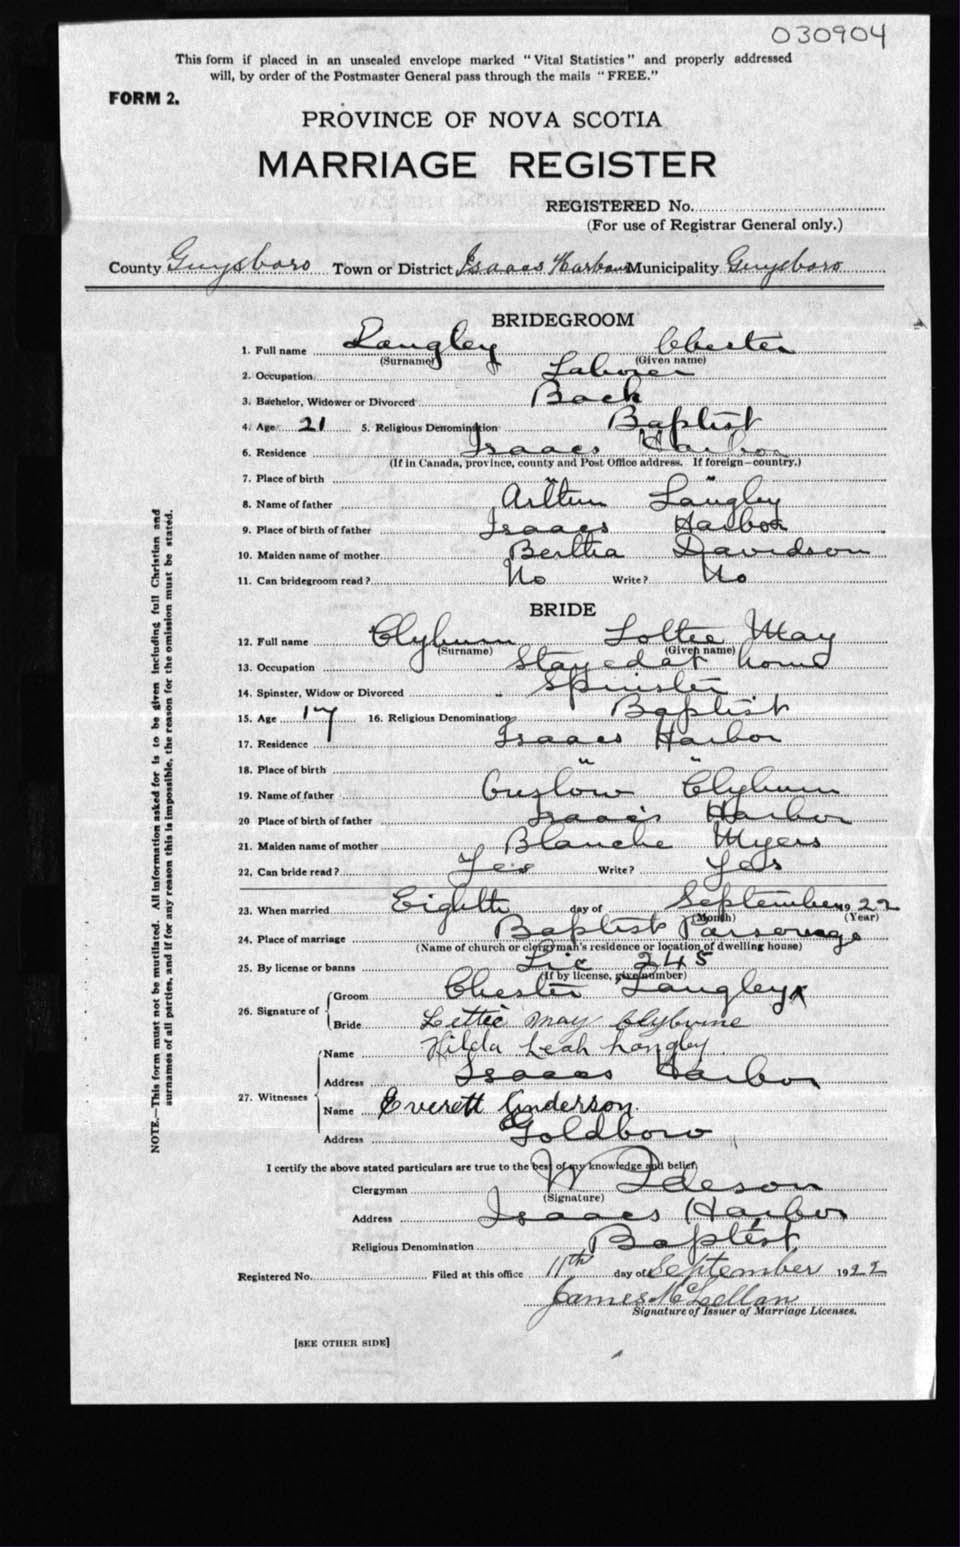 030904
This form if placed in an unsealed envelope marked "Vital Statistics" and properly addressed
will, by order of the Postmaster General pass through the mails "FREE."
FORM 2.
PROVINCE OF NOVA SCOTIA
MARRIAGE REGISTER
REGISTERED No.
(For use of Registrar General only.)
County Guysboro Town or District Isaacs Harbour Municipality Guysboro
BRIDEGROOM
1. Full name Langley Chester
(Surname) (Given name)
2. Occupation Laborer
3. Bachelor, Widower or Divorced Bach
4. Age 21 5. Religious Denomination Baptist
6. Residence Isaacs Harbor
(If in Canada, province, county and Post Office address. If foreign—country.)
7. Place of birth " "
8. Name of father Langley
9. Place of birth of father Isaacs Harbor
10. Maiden name of mother Bertha Davidson
11. Can bridegroom read? No Write? No
BRIDE
12. Full name Clyburn Lottie May
(Surname) (Given name)
13. Occupation Stayed at home
14. Spinster, Widow or Divorced Spinster
15. Age 17 16. Religious Denomination Baptist
17. Residence Isaacs Harbor
18. Place of birth " "
19. Name of father Clyburn
20 Place of birth of father Isaacs Harbor
21. Maiden name of mother Blanche Myers
22. Can bride read? Yes Write? Yes
23. When married Eighth day of September 1922
(Month) (Year)
24. Place of marriage Baptist Parsonage
(Name of church or clergyman's residence or location of dwelling house)
25. By license or banns Lic 245
(If by license, give number)
26. Signature of Groom Chester Langley x
Bride Lettie may Clyburne
27. Witnesses Name Hilda Leah Langley
Address Isaacs Harbor
Name Everett Anderson
Address Goldboro
I certify the above stated particulars are true to the best of my knowledge and belief.
Clergyman W
(Signature)
Address Isaacs Harbor
Religious Denomination Baptist
Registered No. Filed at this office 11th day of September 1922
James McLellan
Signature of Issuer of Marriage Licenses.
[SEE OTHER SIDE]
NOTE.—This form must not be mutilated. All information asked for is to be given including full Christian and
surnames of all parties, and if for any reason this is impossible, the reason for the omission must be stated.